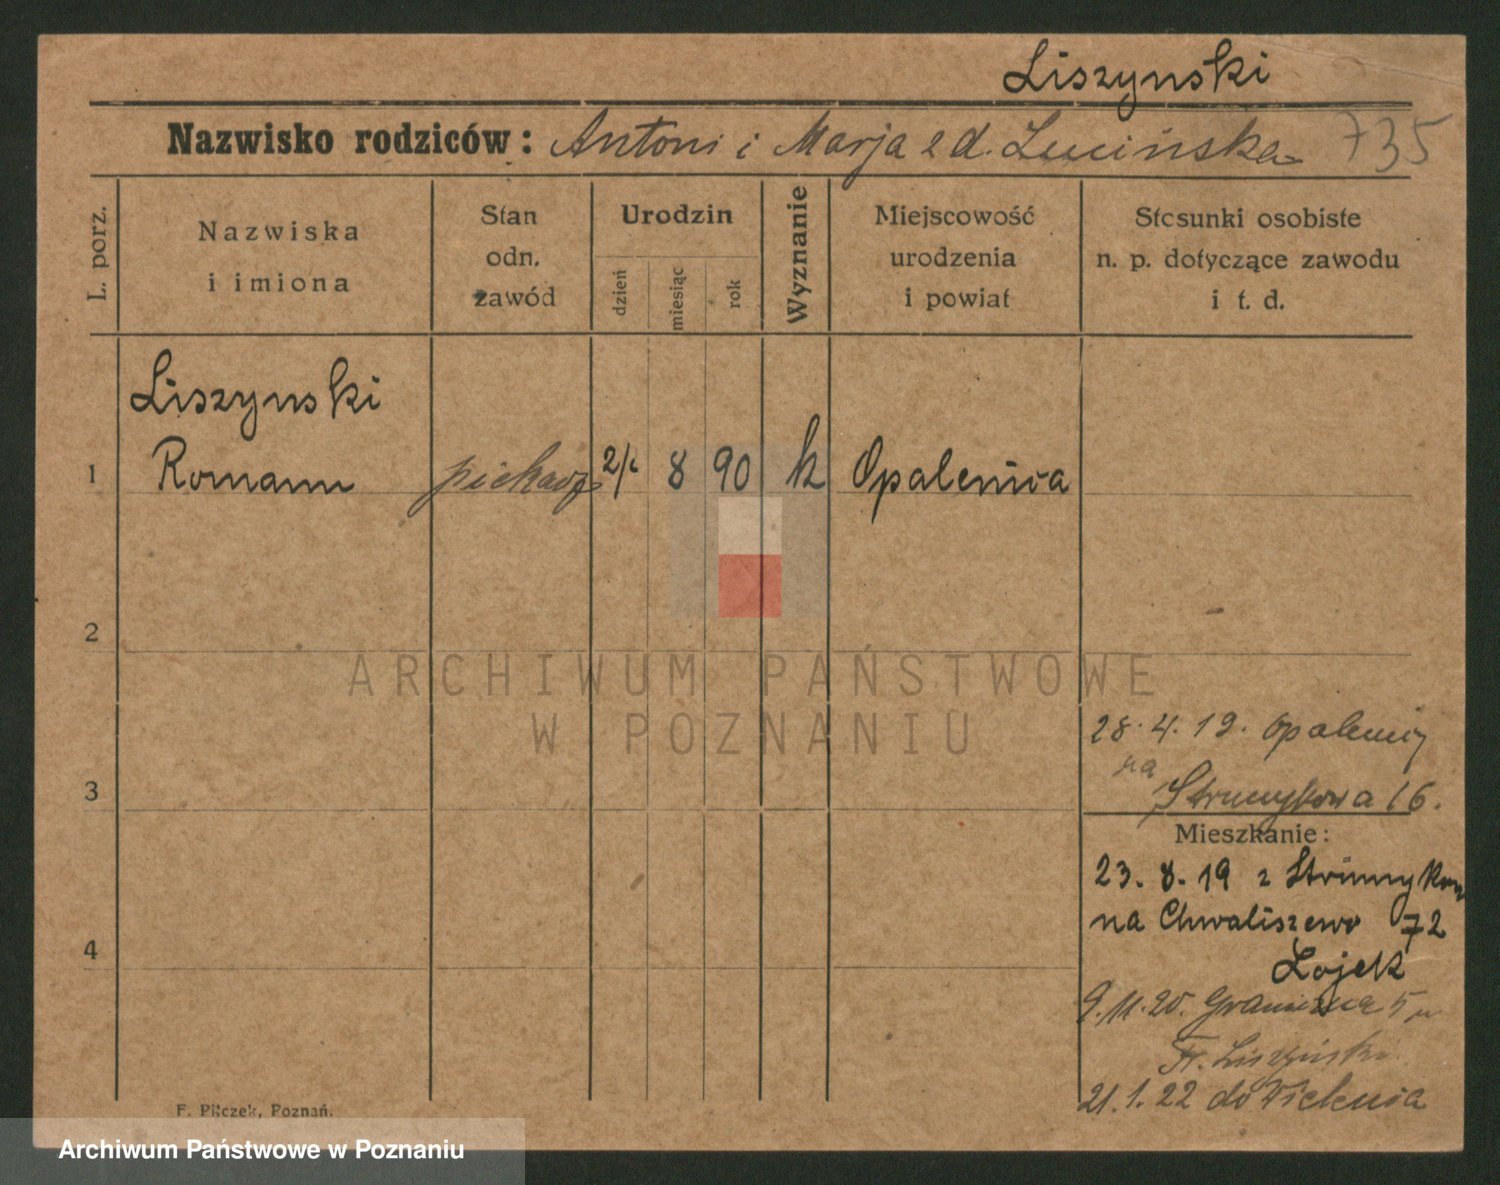 Liszynski
Nazwisko rodziców: Antoni i Marja z d. Lucińska 735
L. porz.
Nazwiska
i imiona
Stan
odn.
zawód
Urodzin
dzień
miesiąc
rok
Wyznanie
Miejscowość
urodzenia
i powiat
Stosunki osobiste
n. p. dotyczące zawodu
i t. d.
Liszynski
1 Roman piekarz 2/ 8 90 k Opalenica
2
ARCHIWUM PAŃSTWOWE
W POZNANIU
28. 4. 19. Opalenicy
na
3 Strumykowa 16.
Mieszkanie:
23. 8. 19 z
na Chwaliszewo 72
4
Lojek
9. 11. 20. Graniczna 5
Fr. Liszyński
21. 1. 22 do
F. Pilczek, Poznań.
Archiwum Państwowe w Poznaniu